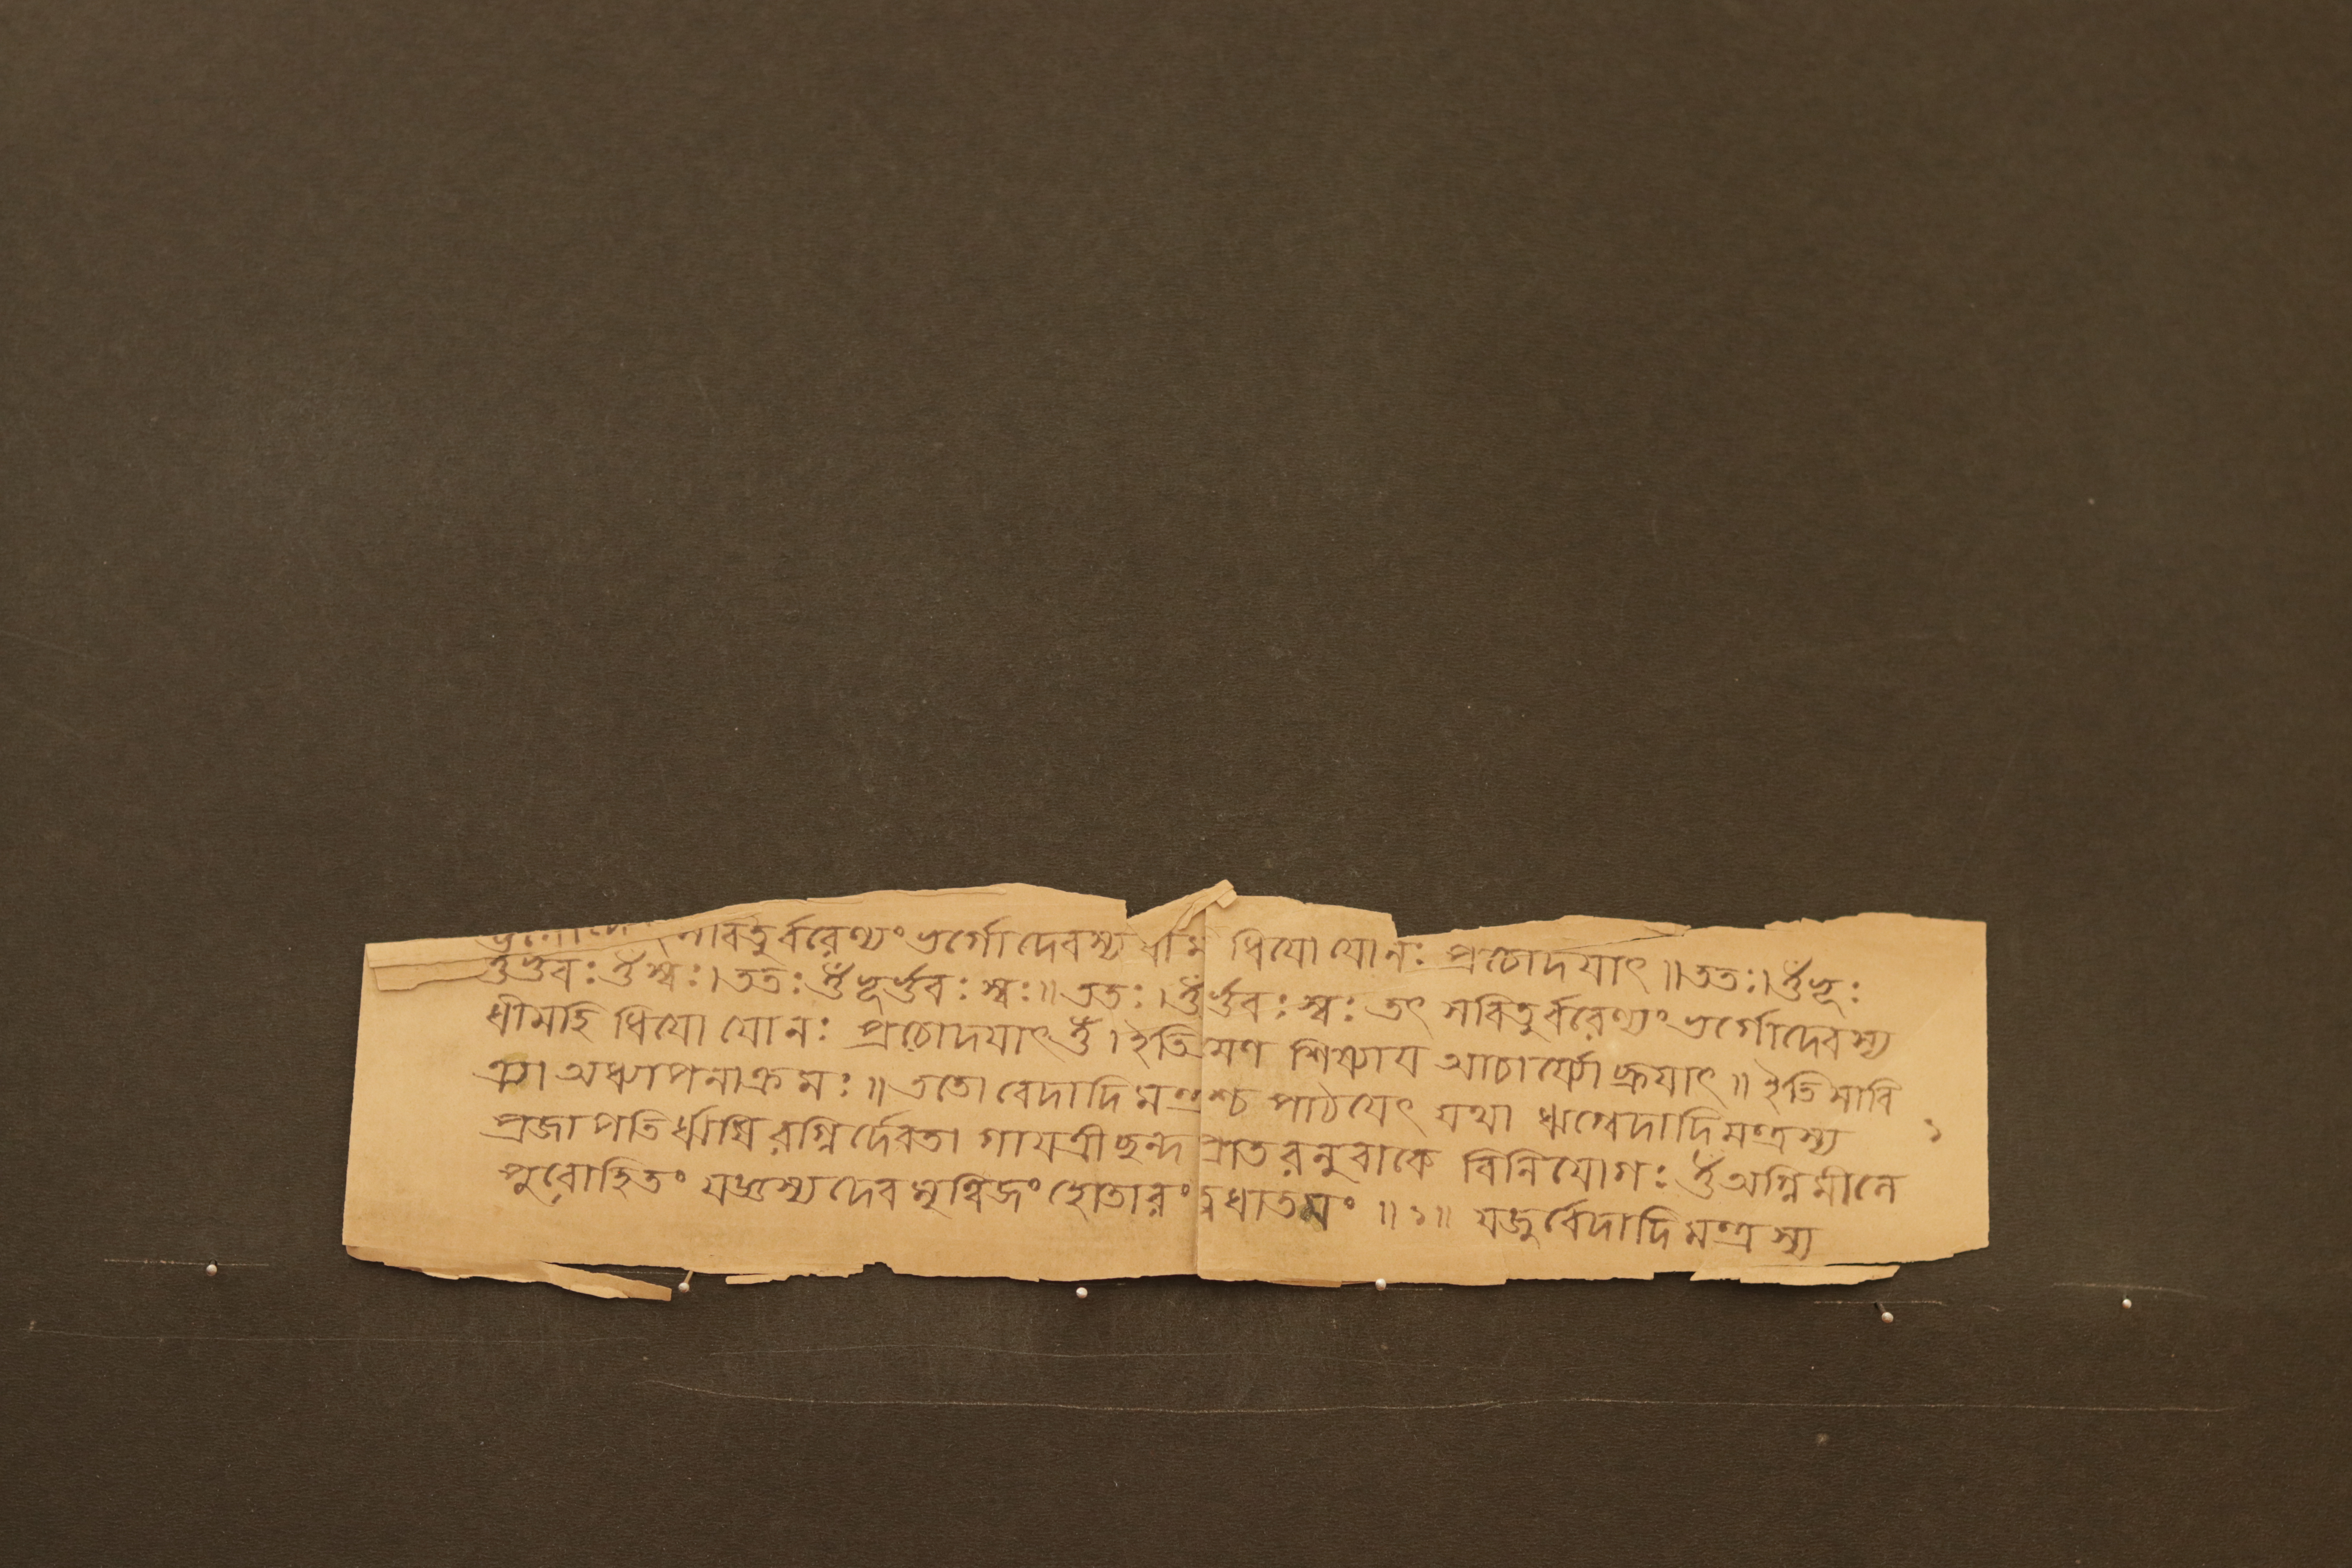 সবিতুর্ব্বরেণ্যং ভর্গোদেবস্য ধীম ধিযো যোনঃ প্রচোদযাৎ ॥ ততঃ। ওঁ ভূঃ
ওঁ ভুবঃ ওঁ স্বঃ। ততঃ ওঁ ভূর্ভুবঃ স্বঃ॥ ততঃ। ওঁ র্ভুবঃ স্বঃ তৎ সবিতুর্ব্বরেণ্যং ভর্গোদেবস্য
ধীমহি ধিযো যোনঃ প্রচোদযাৎ ওঁ। ইতি মণ শিষ্যায আচার্য্যো ব্রূযাৎ॥ ইতি সাবি
ত্র্যা অধ্যাপনাক্রমঃ॥ ততো বেদাদি মন্ত্রশ্চ পাঠযেৎ যথা ঋগ্বেদাদিমন্ত্রস্য ১
প্রজাপতির্ঋষিরগ্নির্দেবতা গাযত্রীছন্দ প্রাতরনুবাকে বিনিযোগঃ ওঁ অগ্নিমীলে
পুরোহিতং যজ্ঞস্য দেবমৃত্বিজং হোতারং ধাতমং ॥১॥ যজুর্ব্বেদাদি মন্ত্রস্য